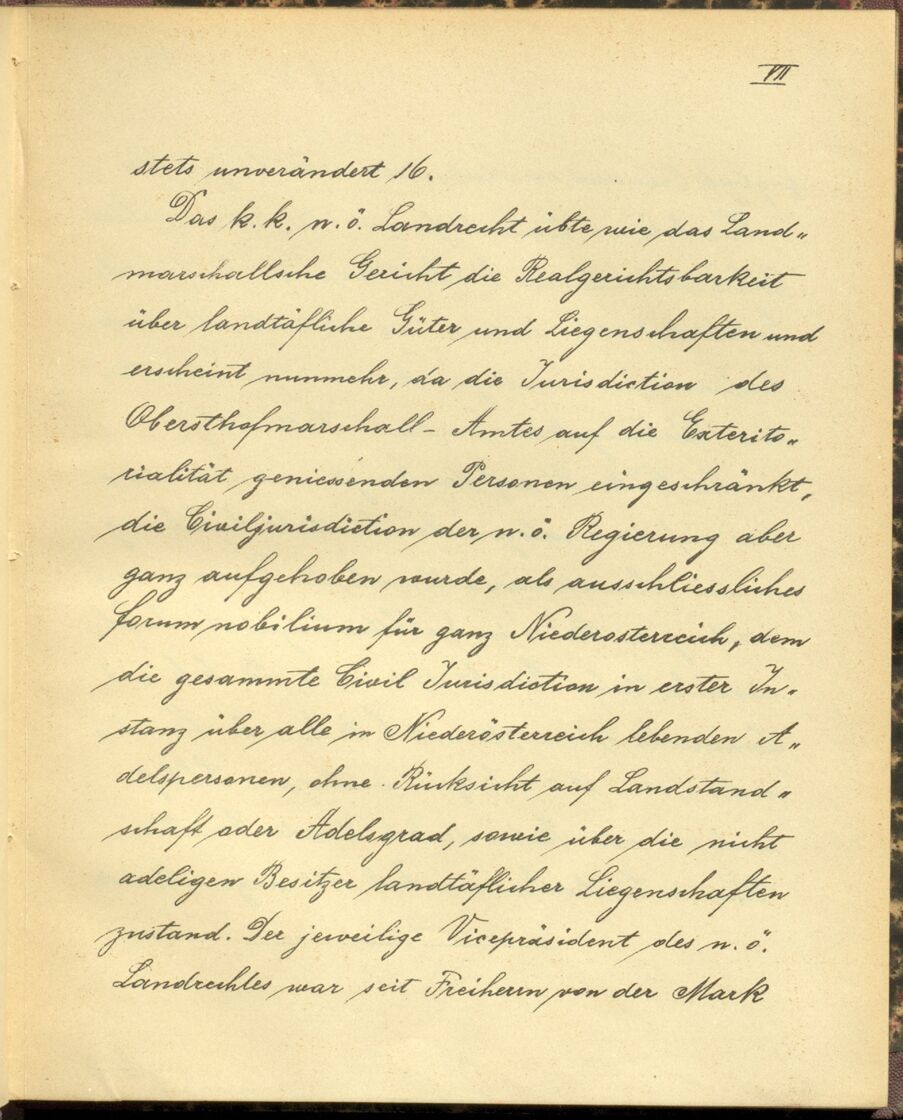 VII
stets unverändert 16.
Das k. k. n. ö. Landrecht übte wie das Land„
marschallsche Gericht die Realgerichtsbarkeit
über landtäfliche Güter und Liegenschaften und
erscheint nunmehr, da die Jurisdiction des
Obersthofmarschall- Amtes auf die Exterito„
rialität geniessenden Personen eingeschränkt,
die Civiljurisdiction der n. ö. Regierung aber
ganz aufgehoben wurde, als ausschliessliches
forum nobilium für ganz Niederosterreich, dem
die gesammte Civil Jurisdiction in erster In„
stanz über alle in Niederösterreich lebenden A„
delspersonen, ohne Rücksicht auf Landstand„
schaft oder Adelsgrad, sowie über die nicht
adeligen Besitzer landtäflicher Liegenschaften
zustand. Der jeweilige Vicepräsident des n. ö.
Landrechtes war seit Freiherrn von der Mark